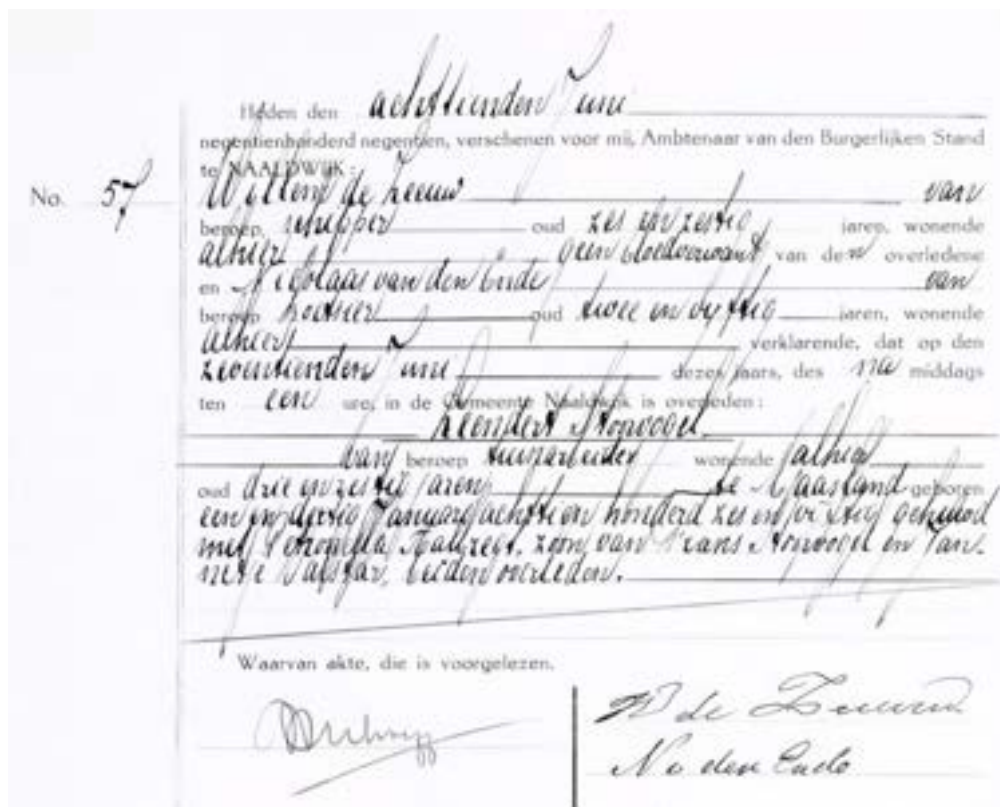 Heden den achttienden Juni
negentienhonderd negentien, verschenen voor mij, Ambtenaar van den Burgerlijken Stand
te NAALDWIJK:
No. 57 Willem de Zeeuw van
beroep schipper oud zes en zestig jaren, wonende
alhier geen bloedverwant van den overledene
en Nicolaas van den Ende van
beroep koetsier oud twee en vyftig jaren, wonende
alhier verklarende, dat op den
zeventienden Juni dezes jaars, des na middags
ten een ure, in de Gemeente Naaldwijk is overleden:
Leendert Noordvogel
van beroep tuinarbeider wonende alhier
oud drie en zestig jaren te Maasland geboren
een en dertig Januari achttien honderd zes en vyftig gehuwd
met Petronella zoon van Frans en Jan-
netje beiden overleden.
Waarvan akte, die is voorgelezen.
W de Zeeuw
N v den Ende